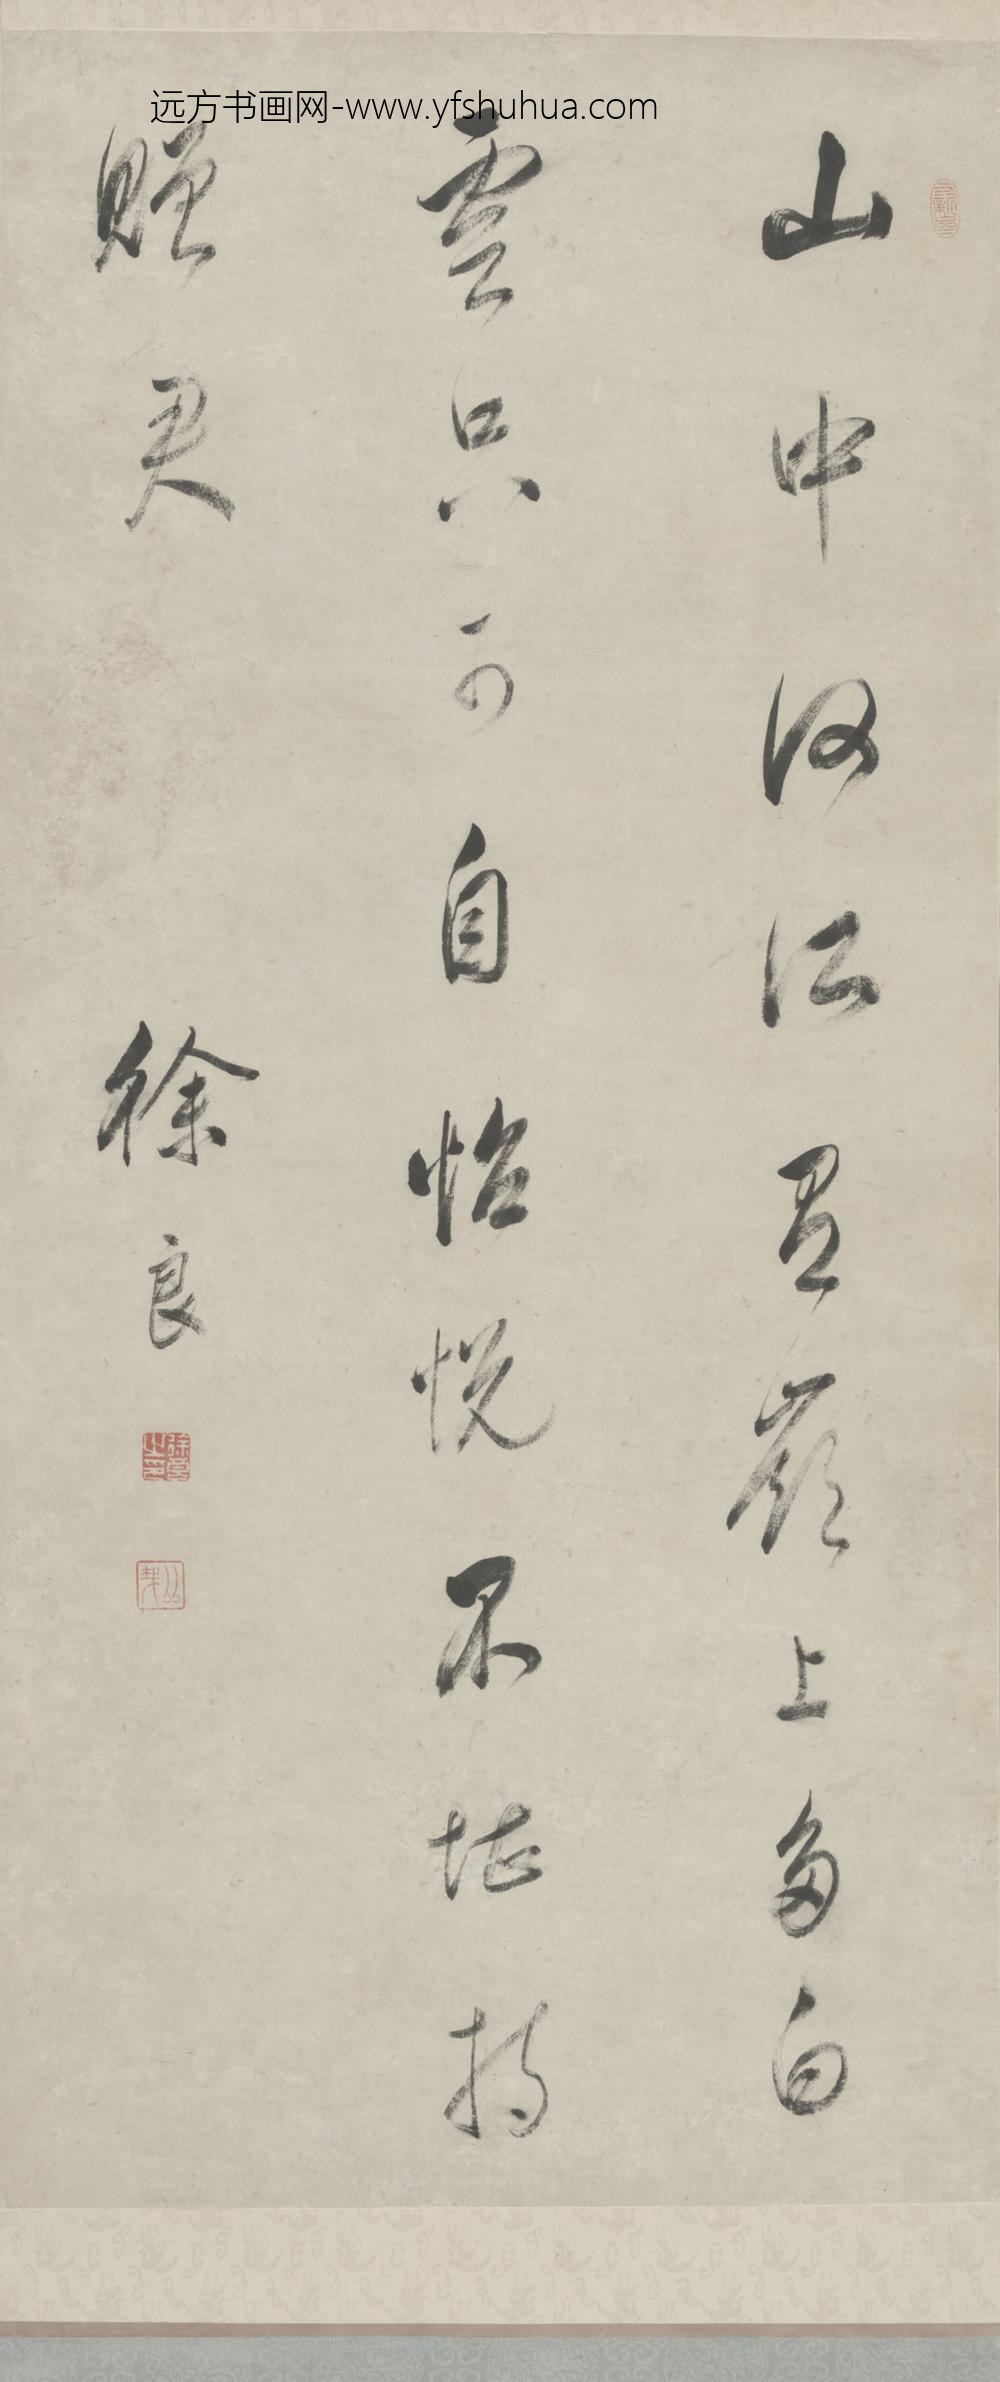 远方书画网-www.yfshuhua.com
山中何所有嶺上多白
雲只可自怡悅不堪持
贈君
徐良
徐良之印